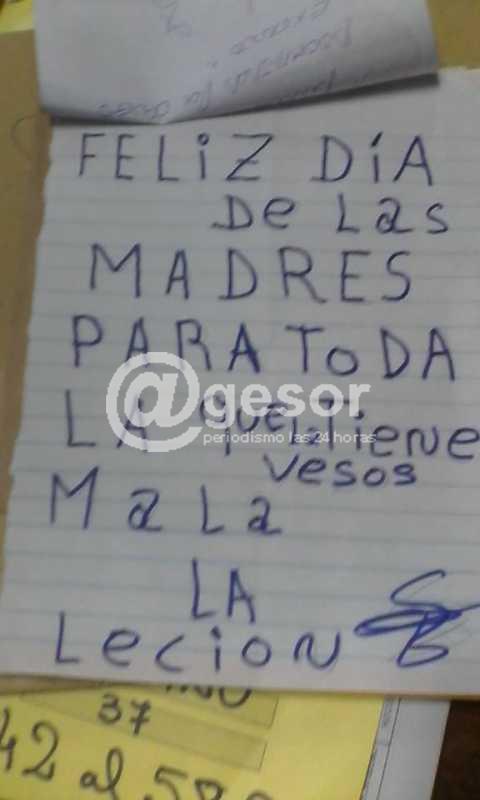 FELiZ DíA
De Las
MADRES
PARA ToDA
LA QUE Tiene
vesos
MaLa
LA
Lecion
@gesor
periodismo las 24 horas
37
42 al